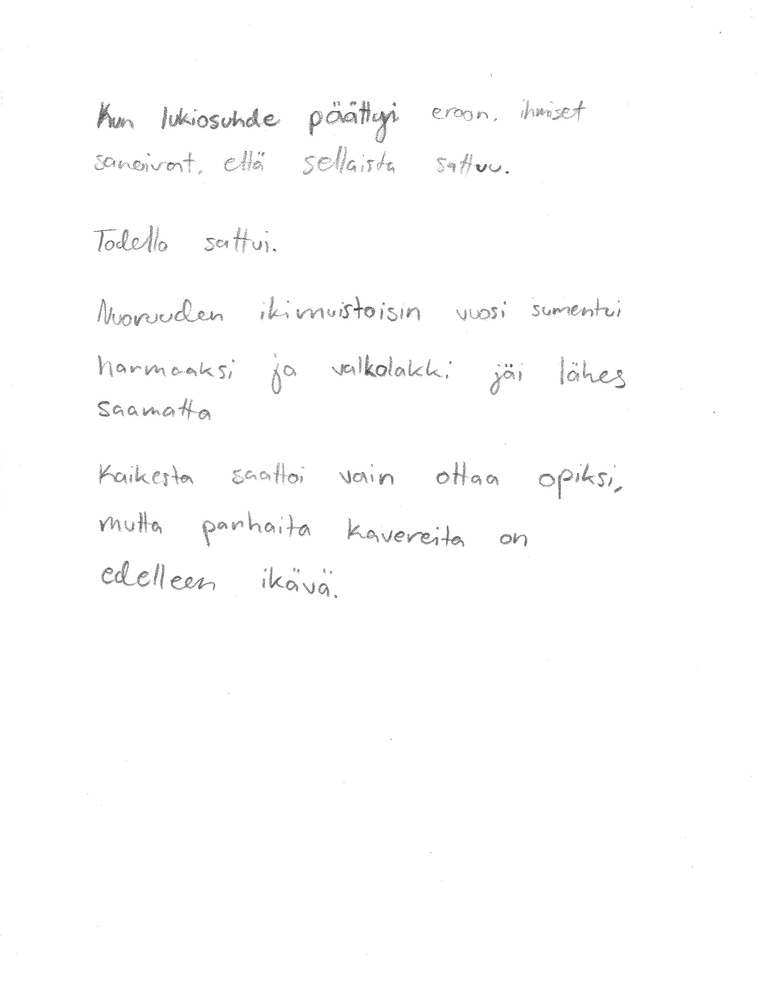 Kun lukiosuhde päättyi eroon, ihmiset
sanoivat, että sellaista sattuu.
Todella sattui.
Nuoruuden ikimuistoisin vuosi sumentui
harmaaksi ja valkolakki jäi lähes
saamatta
Kaikesta saattoi vain ottaa opiksi,
mutta parhaita kavereita on
edelleen ikävä.